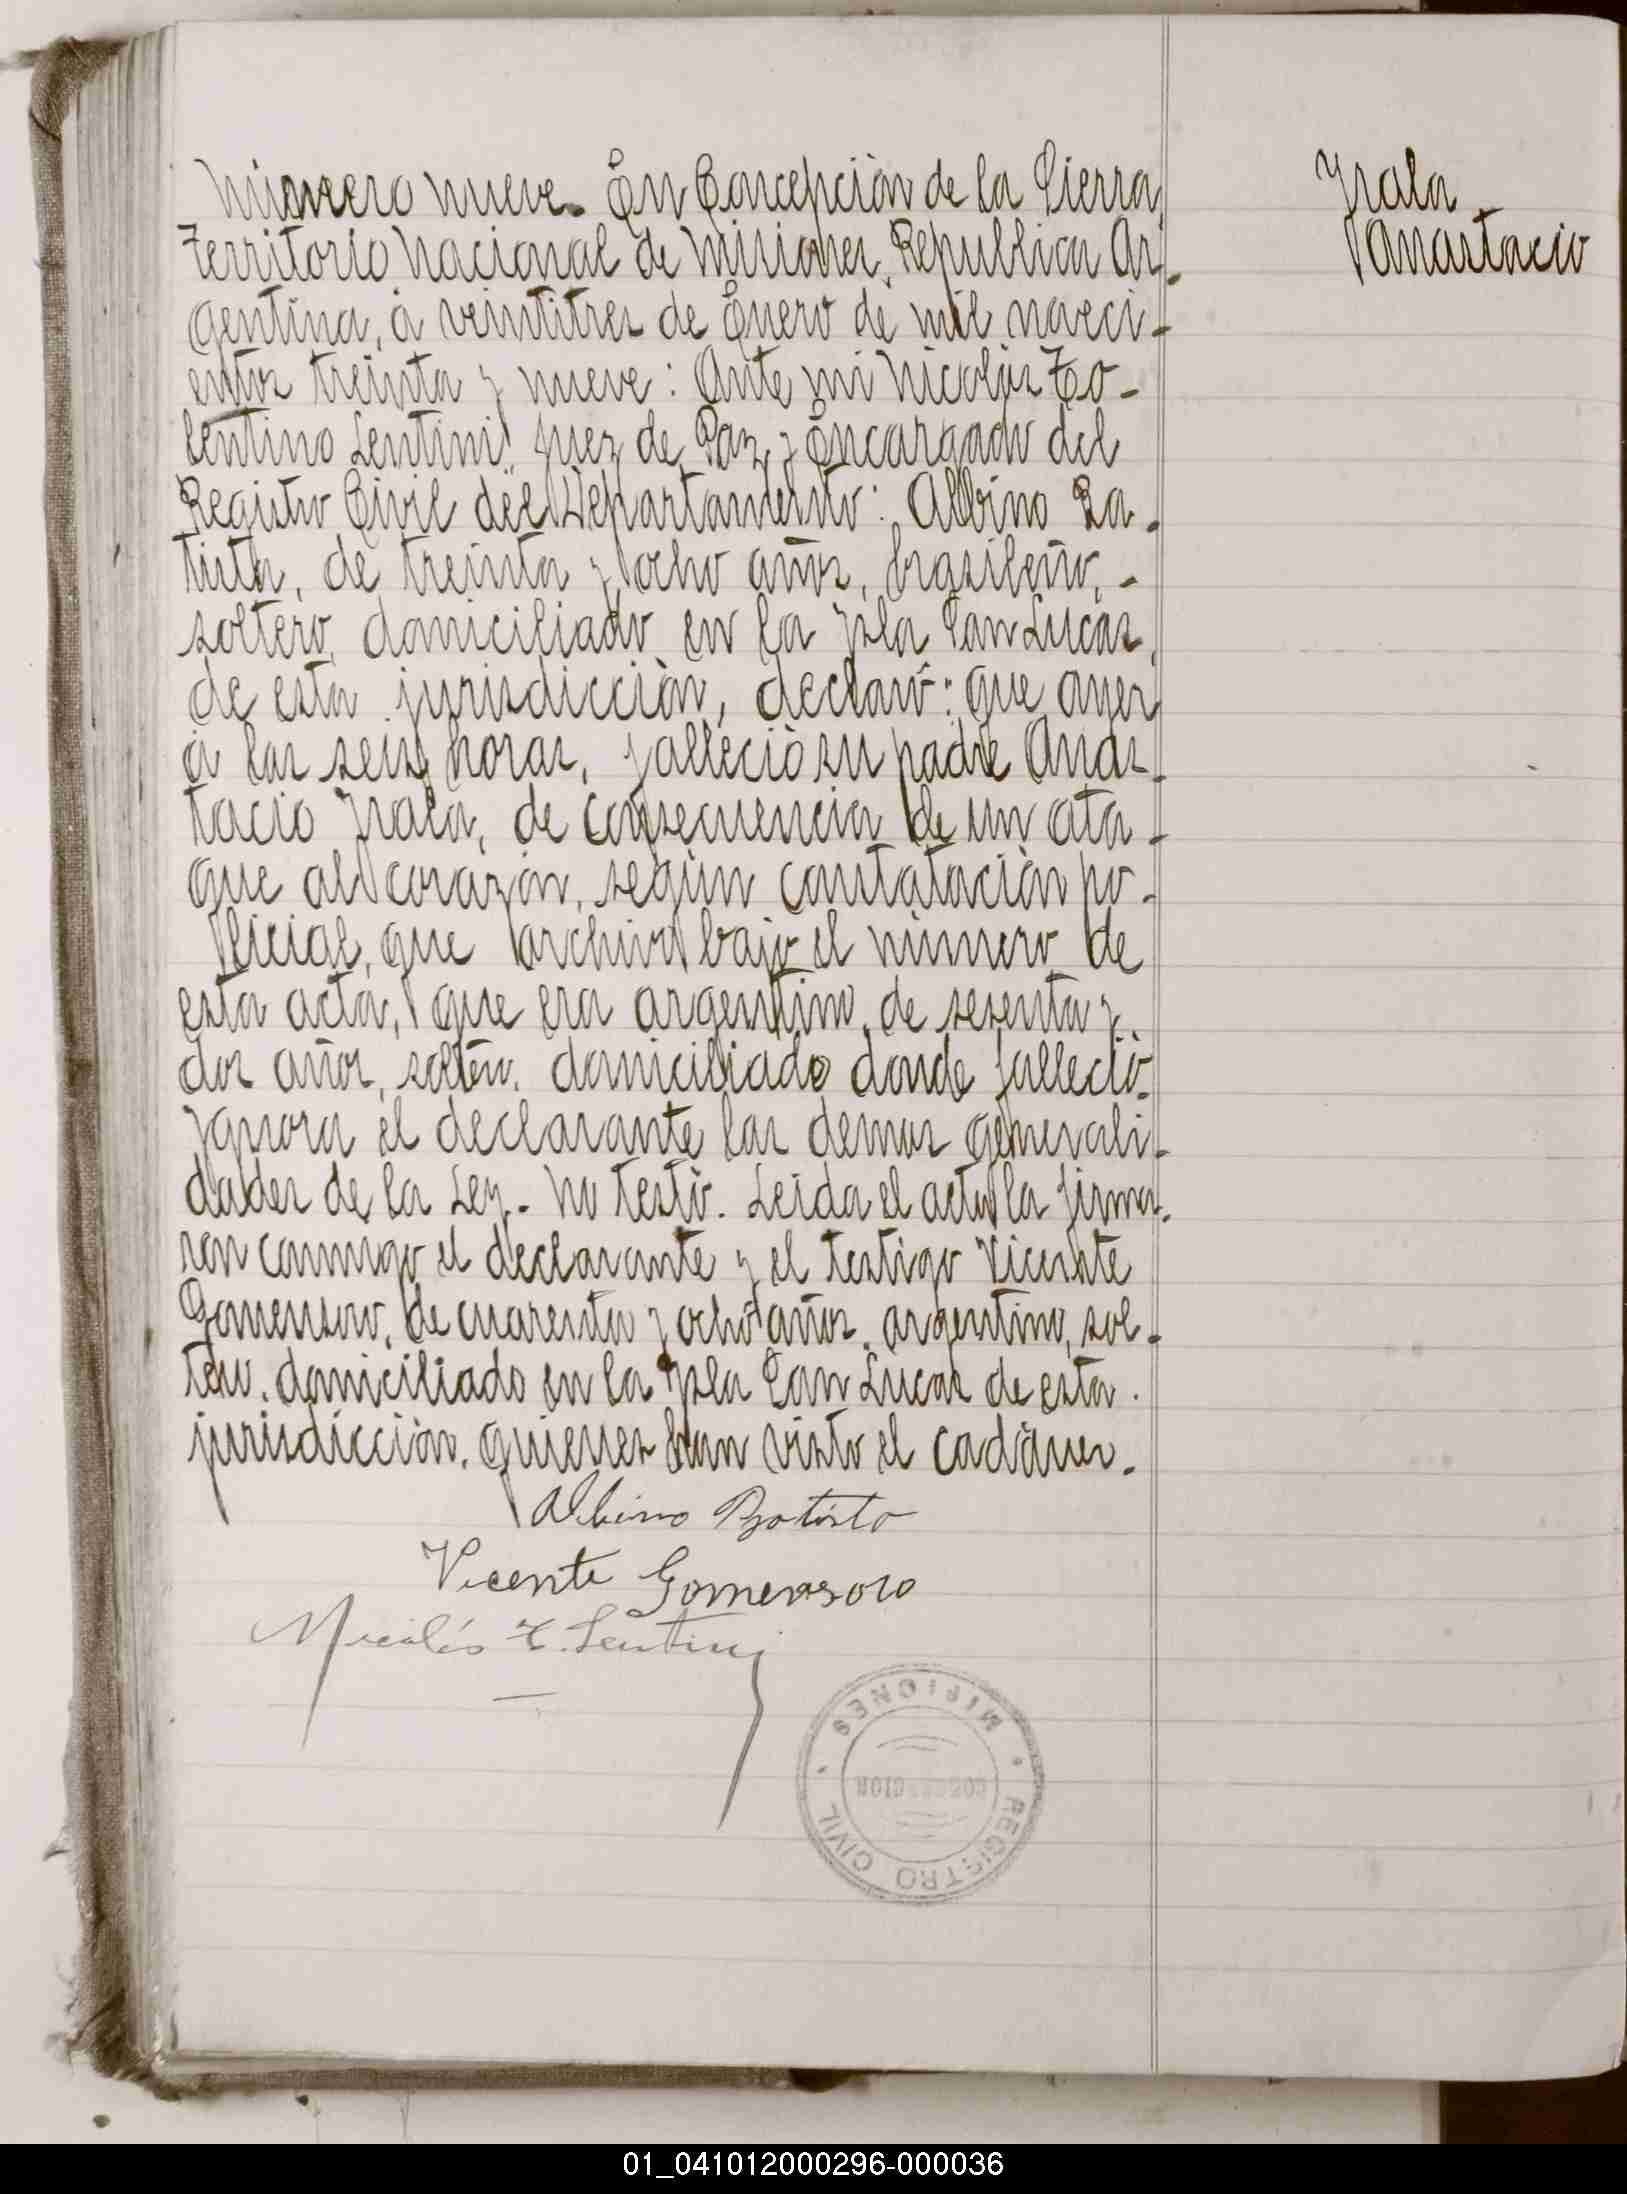 Número nueve. En Concepción de la Sierra,
Territorio Nacional de Misiones, Republica Ar-
gentina, á veintitres de Enero de mil noveci-
entos treinta y nueve: Ante mi Nicolás To-
lentino Lentini, Juez de Paz y Encargado del
Registro Civil del Departamento: Albino Ba-
tista, de treinta y ocho años, brasileño, -
soltero, domiciliado en la Ysla San Lucas,
de esta jurisdicción, declaró: que ayer
á las seis horas, falleció su padre Anas-
tacio Yrala, de consecuencia de un ata-
que al corazón, según constatación po-
licial, que archivo bajo el número de
esta acta, que era argentino, de sesenta y
dos años, soltero, domiciliado donde falleció.
Ygnora el declarante las demas generali-
dades de la Ley. No testó. Leida el acta la firma-
ron conmigo el declarante y el testigo Vicente
Gomensoro, de cuarenta y ocho años, argentino, sol-
tero, domiciliado en la Ysla San Lucas de esta
jurisdicción, quienes han visto el cadáver.
Albino Batista
Vicente Gomensoro
Nicolás T. Lentini
Yrala
Anastacio
MISIONES
REGISTRO CIVIL
01_041012000296-000036